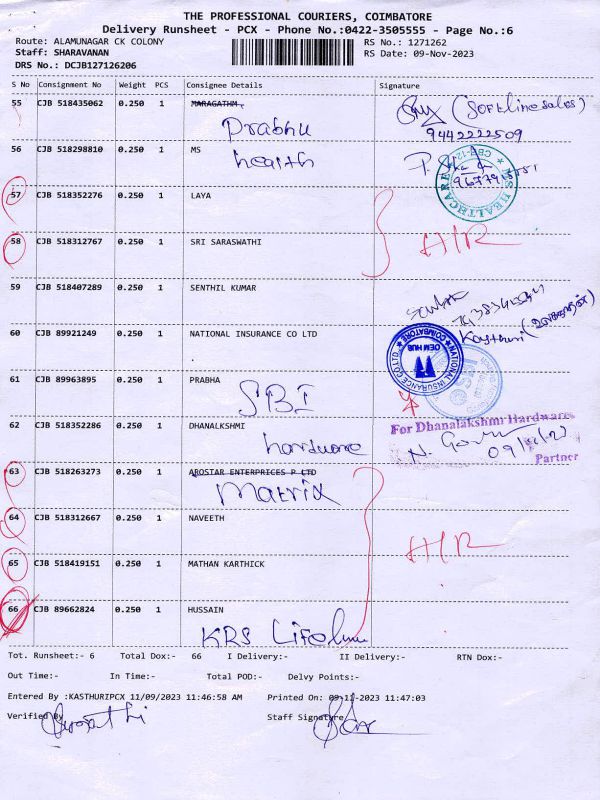 THE PROFESSIONAL COURIERS, COIMBATORE
Delivery Runsheet - PCX - Phone No.:0422-3505555 - Page No.:6
Route: ALAMUNAGAR CK COLONY
RS No.: 1271262
Staff: SHARAVANAN
RS Date: 09-Nov-2023
DRS No.: DCJB127126206
S No Consignment No Weight PCS Consignee Details Signature
55 CJB 518435062 0.250 1 MARAGATHM.
(Softline sales)
Prabhu
9442222509
56 CJB 518298810 0.250 1 MS
health
MS HEALTHCARE
57 CJB 518352276 0.250 1 LAYA
58 CJB 518312767 0.250 1 SRI SARASWATHI
H/R
59 CJB 518407289 0.250 1 SENTHIL KUMAR
Kasthuri
60 CJB 89921249 0.250 1 NATIONAL INSURANCE CO LTD
NATIONAL INSURANCE CO LTD
OEM HUB
COIMBATORE
61 CJB 89963895 0.250 1 PRABHA
SBI
62 CJB 518352286 0.250 1 DHANALAKSHMI
For Dhanalakshmi Hardware
hardware
Partner
63 CJB 518263273 0.250 1 AROSTAR ENTERPRICES P LTD
Matrix
64 CJB 518312667 0.250 1 NAVEETH
H/R
65 CJB 518419151 0.250 1 MATHAN KARTHICK
66 CJB 89662824 0.250 1 HUSSAIN
KRS
Tot. Runsheet:- 6 Total Dox:- 66 I Delivery:- II Delivery:- RTN Dox:-
Out Time:- In Time:- Total POD:- Delvy Points:-
Entered By :KASTHURIPCX 11/09/2023 11:46:58 AM Printed On: 09-11-2023 11:47:03
Verified By Staff Signature